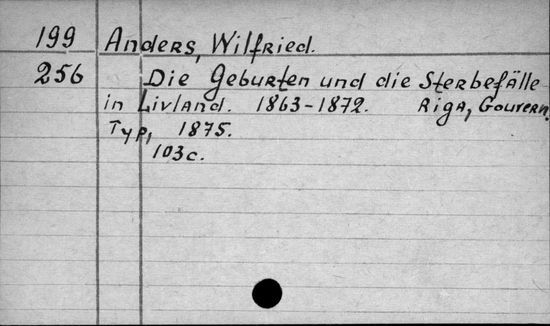 199 Anders, Wilfried.
256 Die Geburten und die Sterbefälle
in Livland. 1863-1872. Riga, Gouvern.
Typ, 1875.
103c.